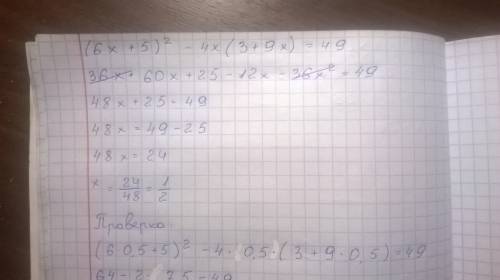 (6x + 5)² - 4x(3 + 9x) = 49
36x² + 60x + 25 - 12x - 36x² = 49
48x + 25 = 49
48x = 49 - 25
48x = 24
x = 24/48 = 1/2
Проверка:
(6·0,5+5)² - 4·0,5·(3+9·0,5) = 49
64 - 2·7,5 = 49